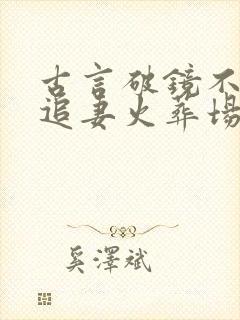 古言破镜不
追妻火葬场
奚泽斌